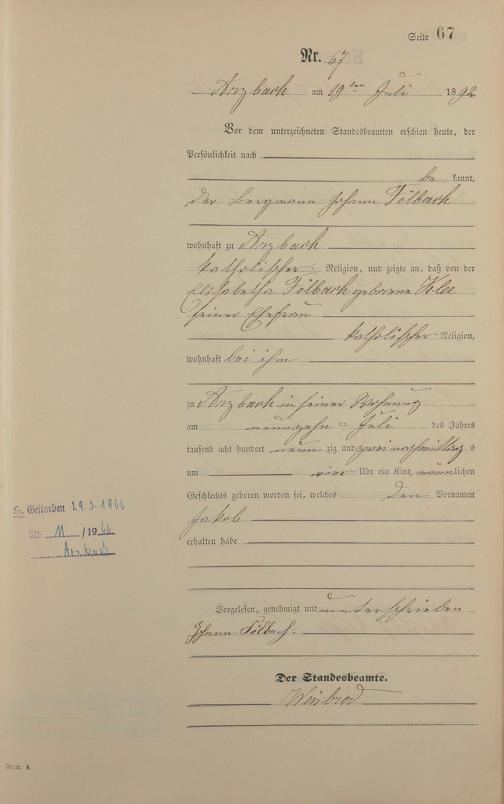 Seite 67
Nr. 67
Arzbach am 19ten Juli 1892
Vor dem unterzeichneten Standesbeamten erschien heute, der
Persönlichkeit nach
be kannt,
der Bergmann Johann Fölbach
wohnhaft zu Arzbach
katholischer Religion, und zeigte an, daß von der
Elisabetha Fölbach geborene Klee
seiner Ehefrau
katholischer Religion,
wohnhaft bei ihm
zu Arzbach in seiner Wohnung
am neunzehn ten Juli des Jahres
tausend acht hundert neun zig und zwei nachmittags
um vier Uhr ein Kind männlichen
Geschlechts geboren worden sei, welches den Vornamen
Jakob
erhalten habe
Gestorben 29.3.1966
Nr. 11 /1966
Arzbach
Vorgelesen, genehmigt und unterschrieben
Johann Fölbach
Der Standesbeamte.
Weisbrod
Form. A.